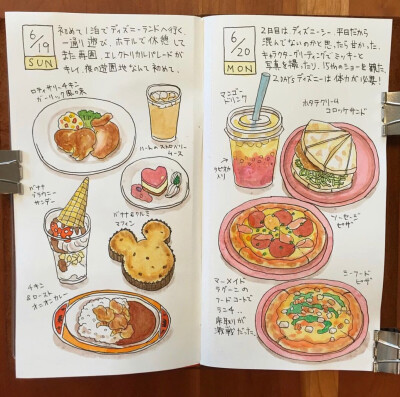 6/19
SUN
初めて1泊でディズニーランドへ行く。
一通り遊び、ホテルで休憩して
また再園。エレクトリカルパレードが
キレイ。夜の遊園地なんて初めて。
ロティサリーチキン
ガーリック風味
ハートのストロベリー
ムース
バナナ
ブラウニー
サンデー
バナナ&クルミ
マフィン
チキン
&ロースト
オニオンカレー
6/20
MON
2日目は、ディズニーシー。平日だから
混んでないのかと思ったら甘かった。
キャラクターグリーティングでミッキーと
写真を撮ったり、15thのショーを観た。
2DAYSディズニーは体力が必要!
マンゴー
ドリンク
タピオカ
入り
ホタテクリーム
コロッケサンド
ソーセージ
ピザ
マーメイド
ラグーニの
フードコートで
ランチ…
席取りが
激戦だった。
シーフード
ピザ